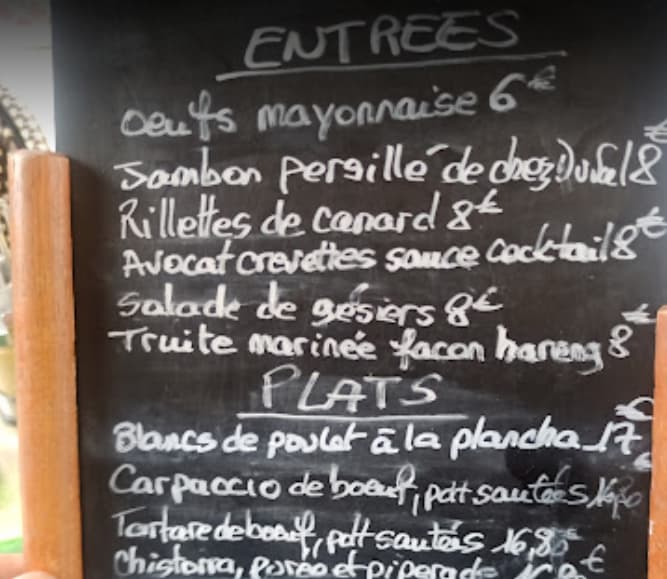 ENTREES
oeufs mayonnaise 6€
Jambon persillé de chez 8€
Rillettes de canard 8€
Avocat crevettes sauce cocktail 8€
Salade de gésiers 8€
Truite marinée facon hareng 8€
PLATS
Blancs de poulet à la plancha 17€
Carpaccio de boeuf, pdt sautées
Tartare de boeuf, pdt sautées 16,80€
Chistorra, purée et piperade